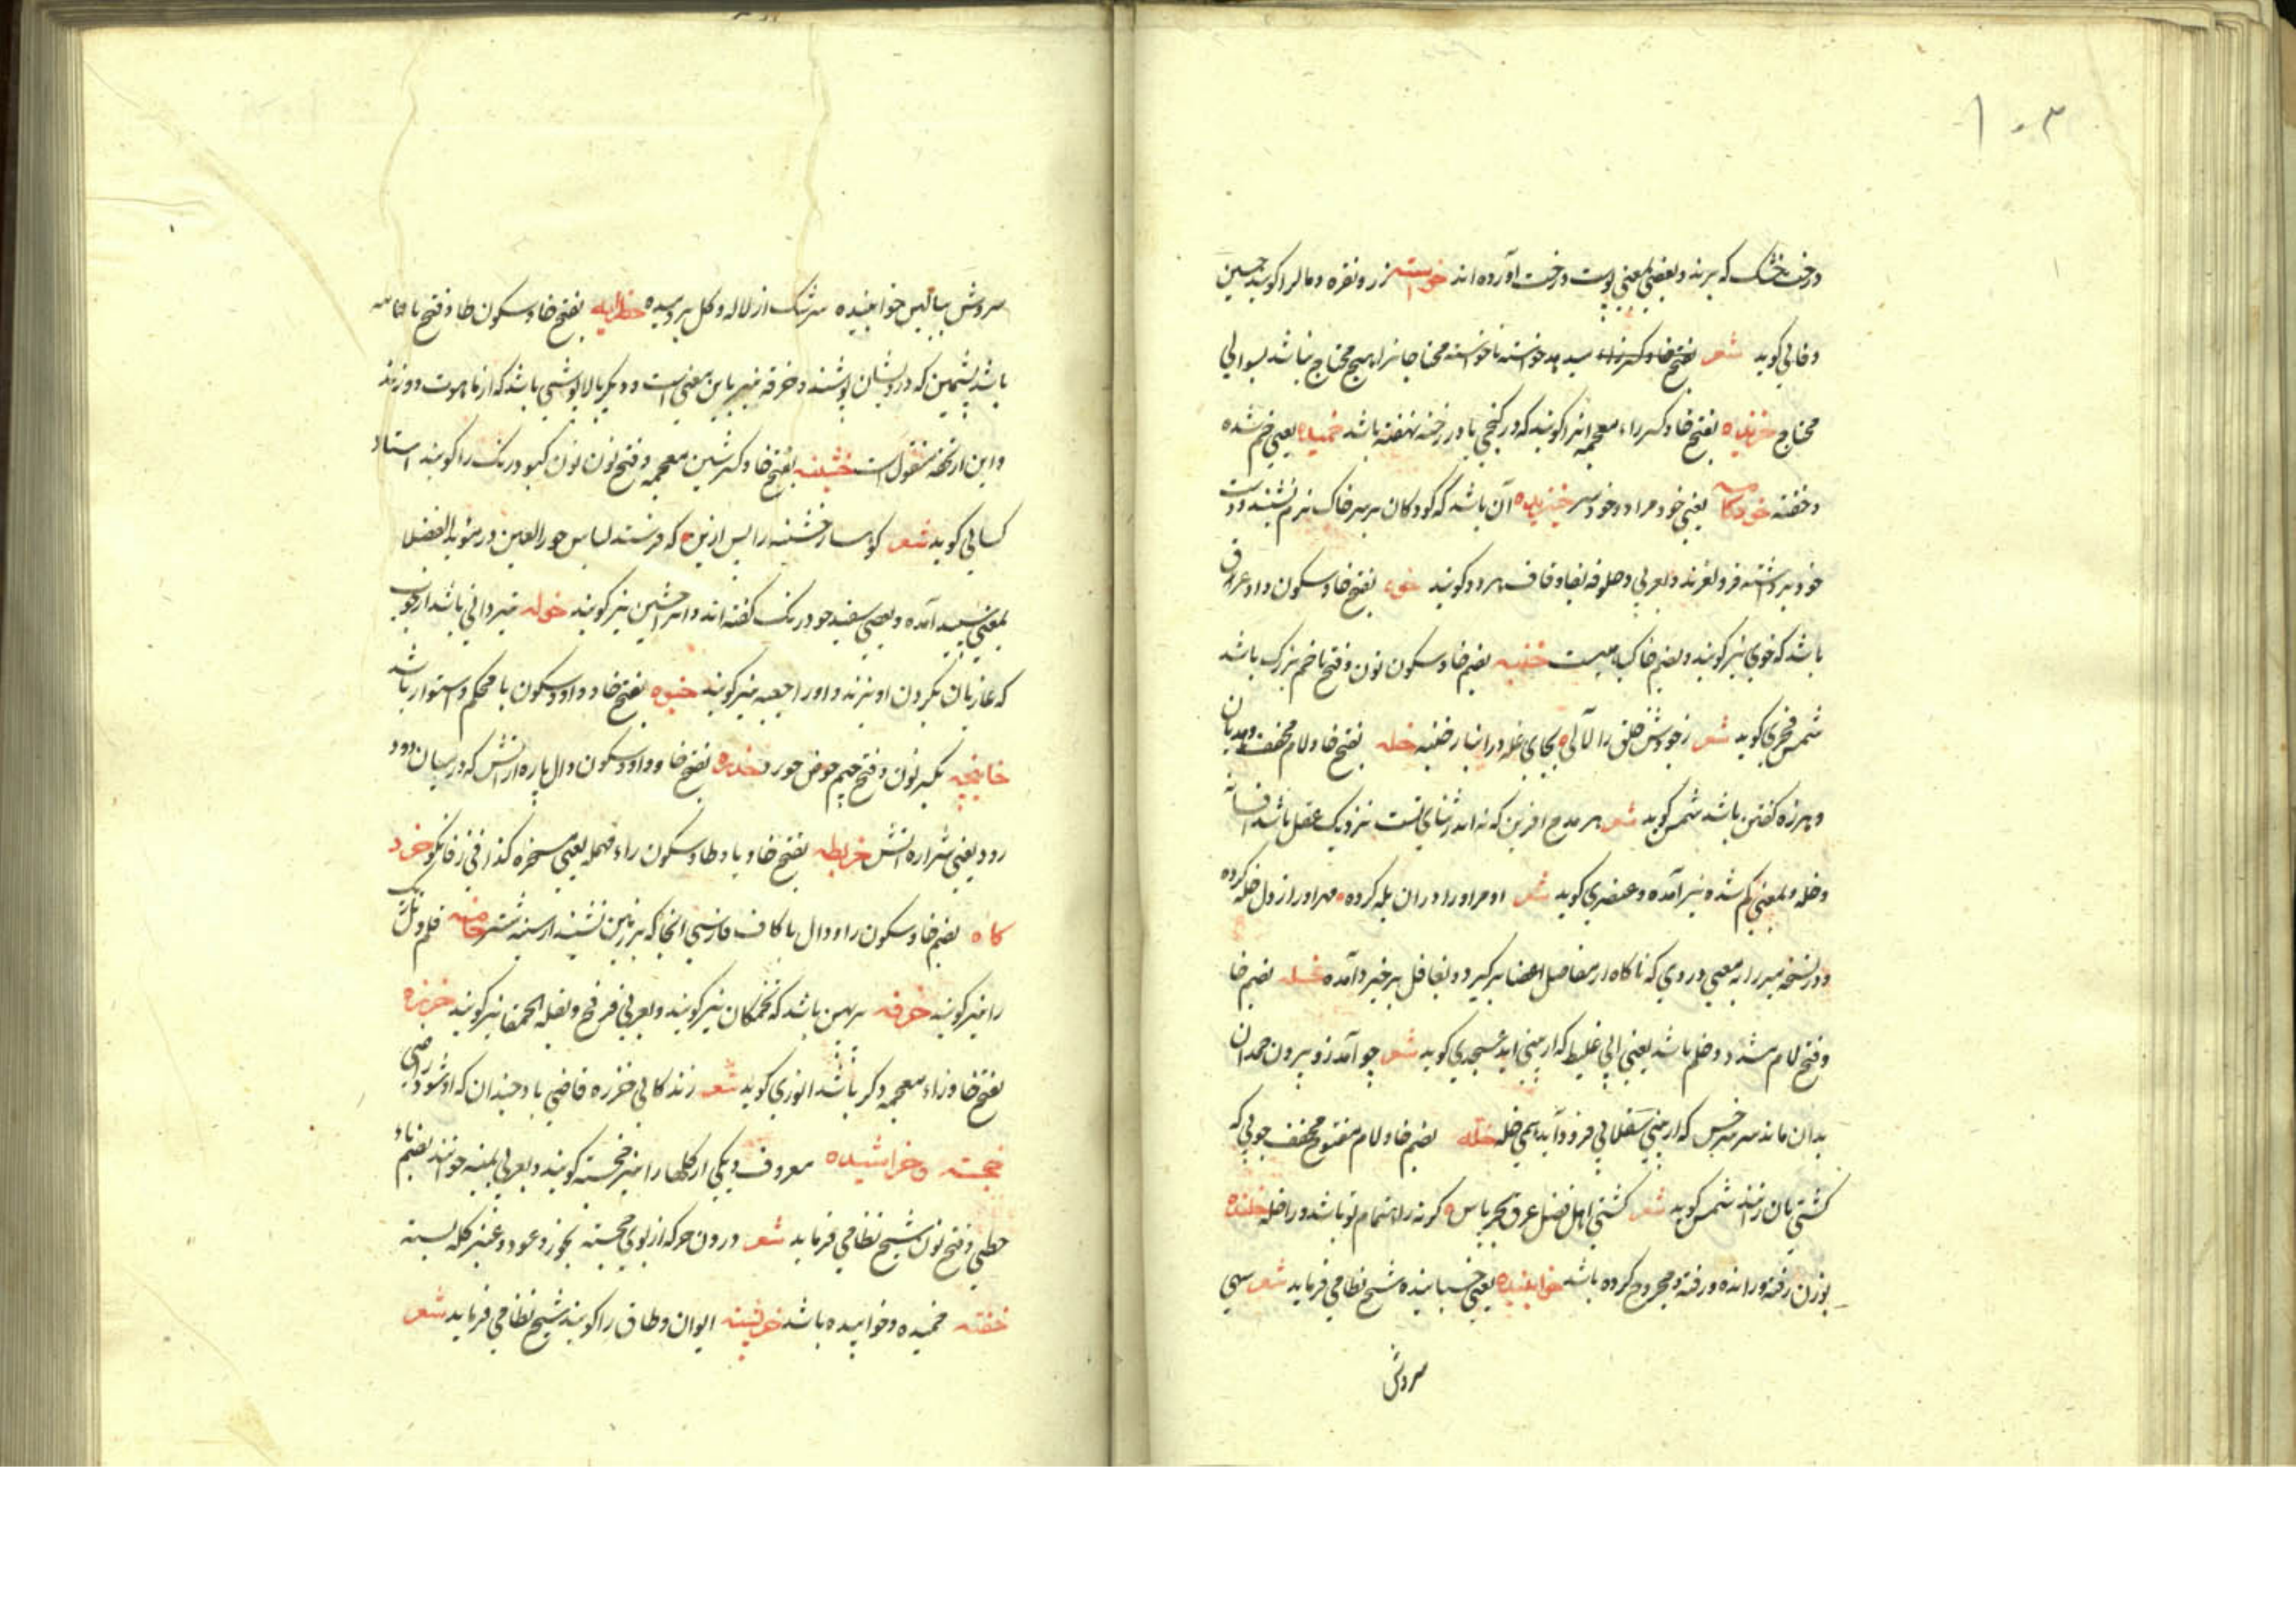 ۱۰۳
درخت خشک که ببرند و بعضی بمعنی پوست درخت آورده اند خواسته زر و نقره و مال را کویند حسین
وفائی کوید شعر میدهد خواسته ناخواسته محتاجانرا هیچ محتاج نباشد بسوالی
محتاج خزیده بفتح خا و کسر زاء معجمه انرا کویند که در کنجی یا در رخنه نهفته باشد خمیده یعنی خم شده
و خفته خودکامه یعنی خودمراد و خودسر آن باشد که کودکان بر سر خاک نرم نشینند و دست
خود برداشته فرو لغزند و بعربی زحلوفه بفا و قاف هر دو کویند خوه بفتح خا و سکون واو عرق
باشد که خوی نیز کویند و بضم خا کیاهیست خنبه بضم خا و سکون نون و فتح با خم بزرک باشد
شمس فخری کوید شعر ز جودش خلق را لآلی بجای غله در انبار خنبه خله بفتح خا و لام مخفف هذیان
و هرزه کفتن باشد شمس کوید شعر هر مدح افرین که نه اندر ثنای تست نزدیک عقل باشد افسانه
و خله و بمعنی کم شده نیز آمده و عنصری کوید شعر او مرا ورا دران یله کرده مهر اورا ز دل خله کرده
و در نسخه میرزا بمعنی دردی که ناکاه از مفاصل اعضا برکیرد و بغافل برخیزد آمده بضم خا
و فتح لام مشدد و خلم باشد یعنی آبی غلیظ که از بینی اید عسجدی کوید شعر چو آمد زو برون حمدان
بدان ماند سر سرخش که از بینی سقلابی فرود آید همی خله خله بضم خا و لام مفتوح مخفف چوبی که
کشتی بان زنند شمس کوید شعر کشتی اهل فضل غرق ببحر یاس کر نه ز اهتمام تو باشد ورا خله خلنده
بوزن رفته و رانده و رفته و مجروح کرده باشد خوابنیده یعنی خسبانیده شیخ نظامی فرماید شعر سهی
سروش
سروش ببالین خوابنیده سرشک از لاله و کل بردمیده بفتح خا و سکون طا و فتح با جامه
باشد پشمین که درویشان پوشند و خرقه نیز باین معنی است و دیکر بالاپوشی باشد که از ماهوت دوزند
و این از تحفه منقول است خشینه بفتح خا و کسر شین معجمه و فتح نون نون کبود رنک را کویند استاد
کسائی کوید شعر کوهسار خشینه را پس ازین که فرستد لباس حورالعین در مؤید الفضلا
بمعنی سپید آمده و بعضی سفید جو درنک کفته اند و انرا خشین نیز کویند خوله تیردانی باشد از چوب
که غازیان بکردن اویزند و اورا جعبه نیز کویند خیوه بفتح خا و واو و سکون یا محکم و استوار باشد
خاینجه بکسر نون و فتح جیم حوض خورد خدره بفتح خا و واو و سکون دال پاره آتش که در میان دود
رود یعنی شراره آتش خربطه بفتح خا و با و طا و سکون راء مهمله یعنی مسخره کذا فی زفانکو خرد
کاه بضم خا و سکون را و دال با کاف فارسی انجا که بر زمین نشیند از سینه شتر خامه قلم و تل ریک
را نیز کویند خرفه پرپهن باشد که تخمکان نیز کویند و بعربی فرفخ و بقلة الحمقا نیز کویند خرزه
بفتح خا و زاء معجمه ذکر باشد انوری کوید شعر زندکانی خرزه قاضی باد چندان که او شود راضی
خجسته و خراشیده معروف و یکی از کلها را نیز خجسته کویند و بعربی یمنیه خوانند بضم یاء
حطی و فتح نون شیخ نظامی فرماید شعر درون خرکه از بوی خجسته بخور و عود و عنبر کله بسته
خفته خمیده و خوابیده باشد خرپشته ایوان و طاق را کویند شیخ نظامی فرماید شعر